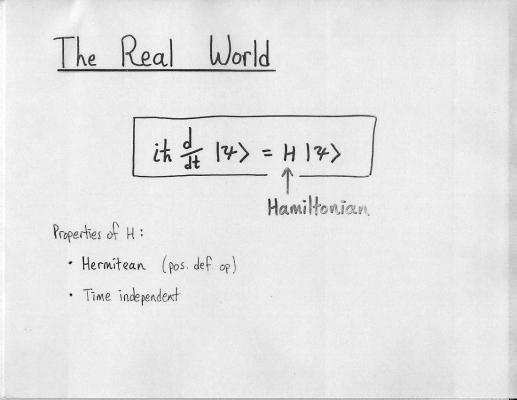 The Real World
iħ d/dt |ψ> = H |ψ>
Hamiltonian
Properties of H:
• Hermitean (pos. def. op)
• Time independent